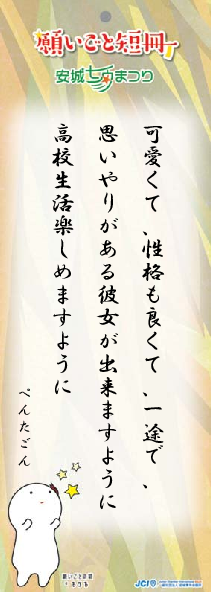 願いごと短冊
安城七夕まつり
可愛くて、性格も良くて、一途で、
思いやりがある彼女が出来ますように
高校生活楽しめますように
ぺんたごん
願いごと短冊
JCI